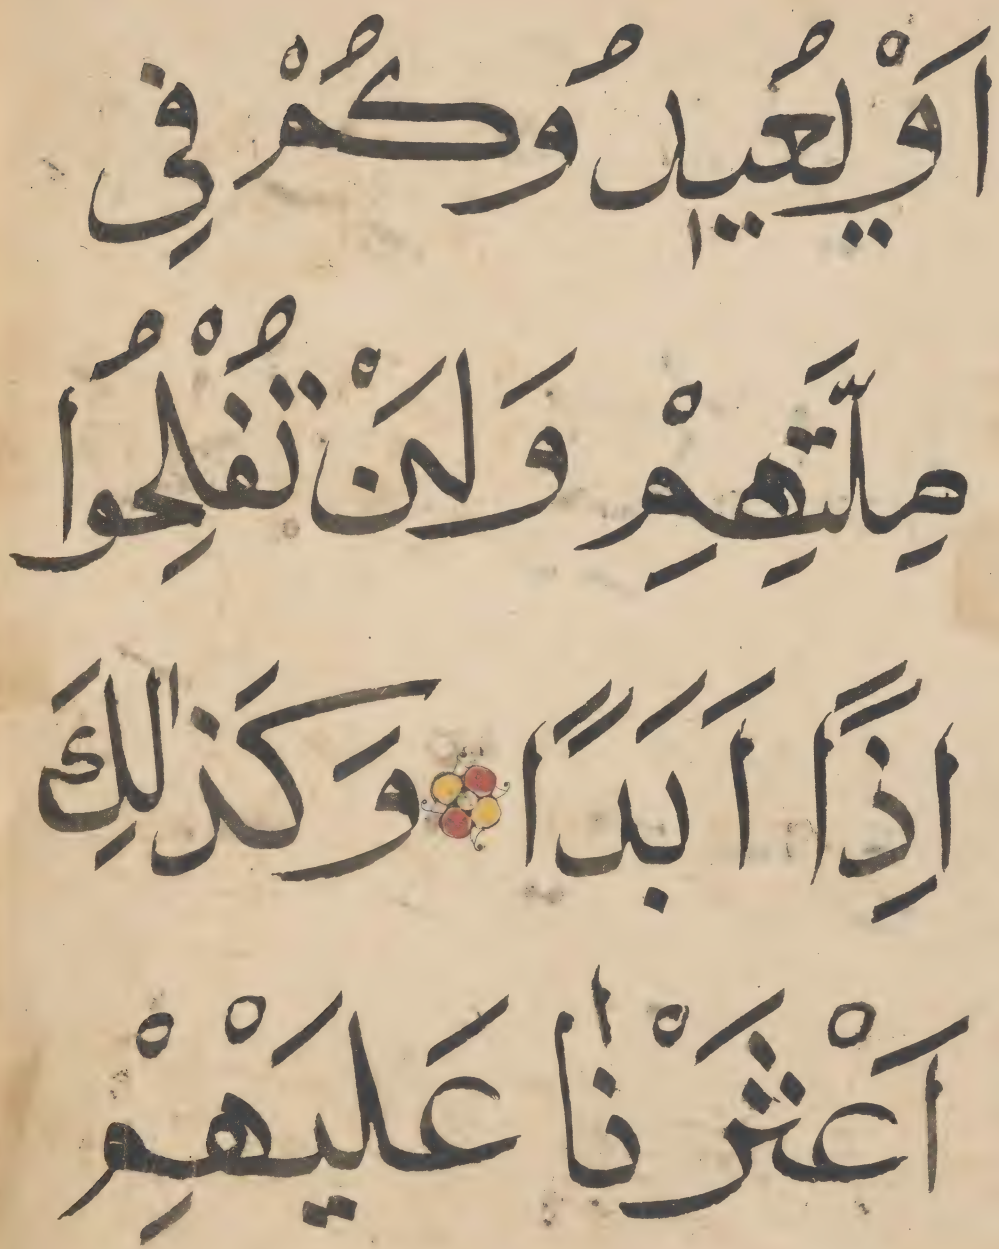 اَوْ يُعٖيدُوكُمْ فِي
مِلَّتِهِمْ وَلَنْ تُفْلِحُوا
اِذًا اَبَدًا وَكَذٰلِكَ
اَعْثَرْنٰا عَلَيْهِمْ